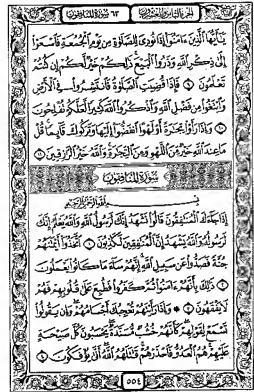 الجزء الثامن والعشرون ٦٣ سورة المنافقون
يَٰٓأَيُّهَا ٱلَّذِينَ ءَامَنُوٓا۟ إِذَا نُودِىَ لِلصَّلَوٰةِ مِن يَوْمِ ٱلْجُمُعَةِ فَٱسْعَوْا۟
إِلَىٰ ذِكْرِ ٱللَّهِ وَذَرُوا۟ ٱلْبَيْعَ ذَٰلِكُمْ خَيْرٌ لَّكُمْ إِن كُنتُمْ
تَعْلَمُونَ ٩ فَإِذَا قُضِيَتِ ٱلصَّلَوٰةُ فَٱنتَشِرُوا۟ فِى ٱلْأَرْضِ
وَٱبْتَغُوا۟ مِن فَضْلِ ٱللَّهِ وَٱذْكُرُوا۟ ٱللَّهَ كَثِيرًا لَّعَلَّكُمْ تُفْلِحُونَ
١٠ وَإِذَا رَأَوْا۟ تِجَٰرَةً أَوْ لَهْوًا ٱنفَضُّوٓا۟ إِلَيْهَا وَتَرَكُوكَ قَآئِمًا قُلْ
مَا عِندَ ٱللَّهِ خَيْرٌ مِّنَ ٱللَّهْوِ وَمِنَ ٱلتِّجَٰرَةِ وَٱللَّهُ خَيْرُ ٱلرَّٰزِقِينَ ١١
سورة المنافقون
بِسْمِ ٱللَّهِ ٱلرَّحْمَٰنِ ٱلرَّحِيمِ
إِذَا جَآءَكَ ٱلْمُنَٰفِقُونَ قَالُوا۟ نَشْهَدُ إِنَّكَ لَرَسُولُ ٱللَّهِ وَٱللَّهُ يَعْلَمُ إِنَّكَ
لَرَسُولُهُۥ وَٱللَّهُ يَشْهَدُ إِنَّ ٱلْمُنَٰفِقِينَ لَكَٰذِبُونَ ١ ٱتَّخَذُوٓا۟ أَيْمَٰنَهُمْ
جُنَّةً فَصَدُّوا۟ عَن سَبِيلِ ٱللَّهِ إِنَّهُمْ سَآءَ مَا كَانُوا۟ يَعْمَلُونَ
٢ ذَٰلِكَ بِأَنَّهُمْ ءَامَنُوا۟ ثُمَّ كَفَرُوا۟ فَطُبِعَ عَلَىٰ قُلُوبِهِمْ فَهُمْ
لَا يَفْقَهُونَ ٣ ۞ وَإِذَا رَأَيْتَهُمْ تُعْجِبُكَ أَجْسَامُهُمْ وَإِن يَقُولُوا۟
تَسْمَعْ لِقَوْلِهِمْ كَأَنَّهُمْ خُشُبٌ مُّسَنَّدَةٌ يَحْسَبُونَ كُلَّ صَيْحَةٍ
عَلَيْهِمْ هُمُ ٱلْعَدُوُّ فَٱحْذَرْهُمْ قَٰتَلَهُمُ ٱللَّهُ أَنَّىٰ يُؤْفَكُونَ ٤
٥٥٤